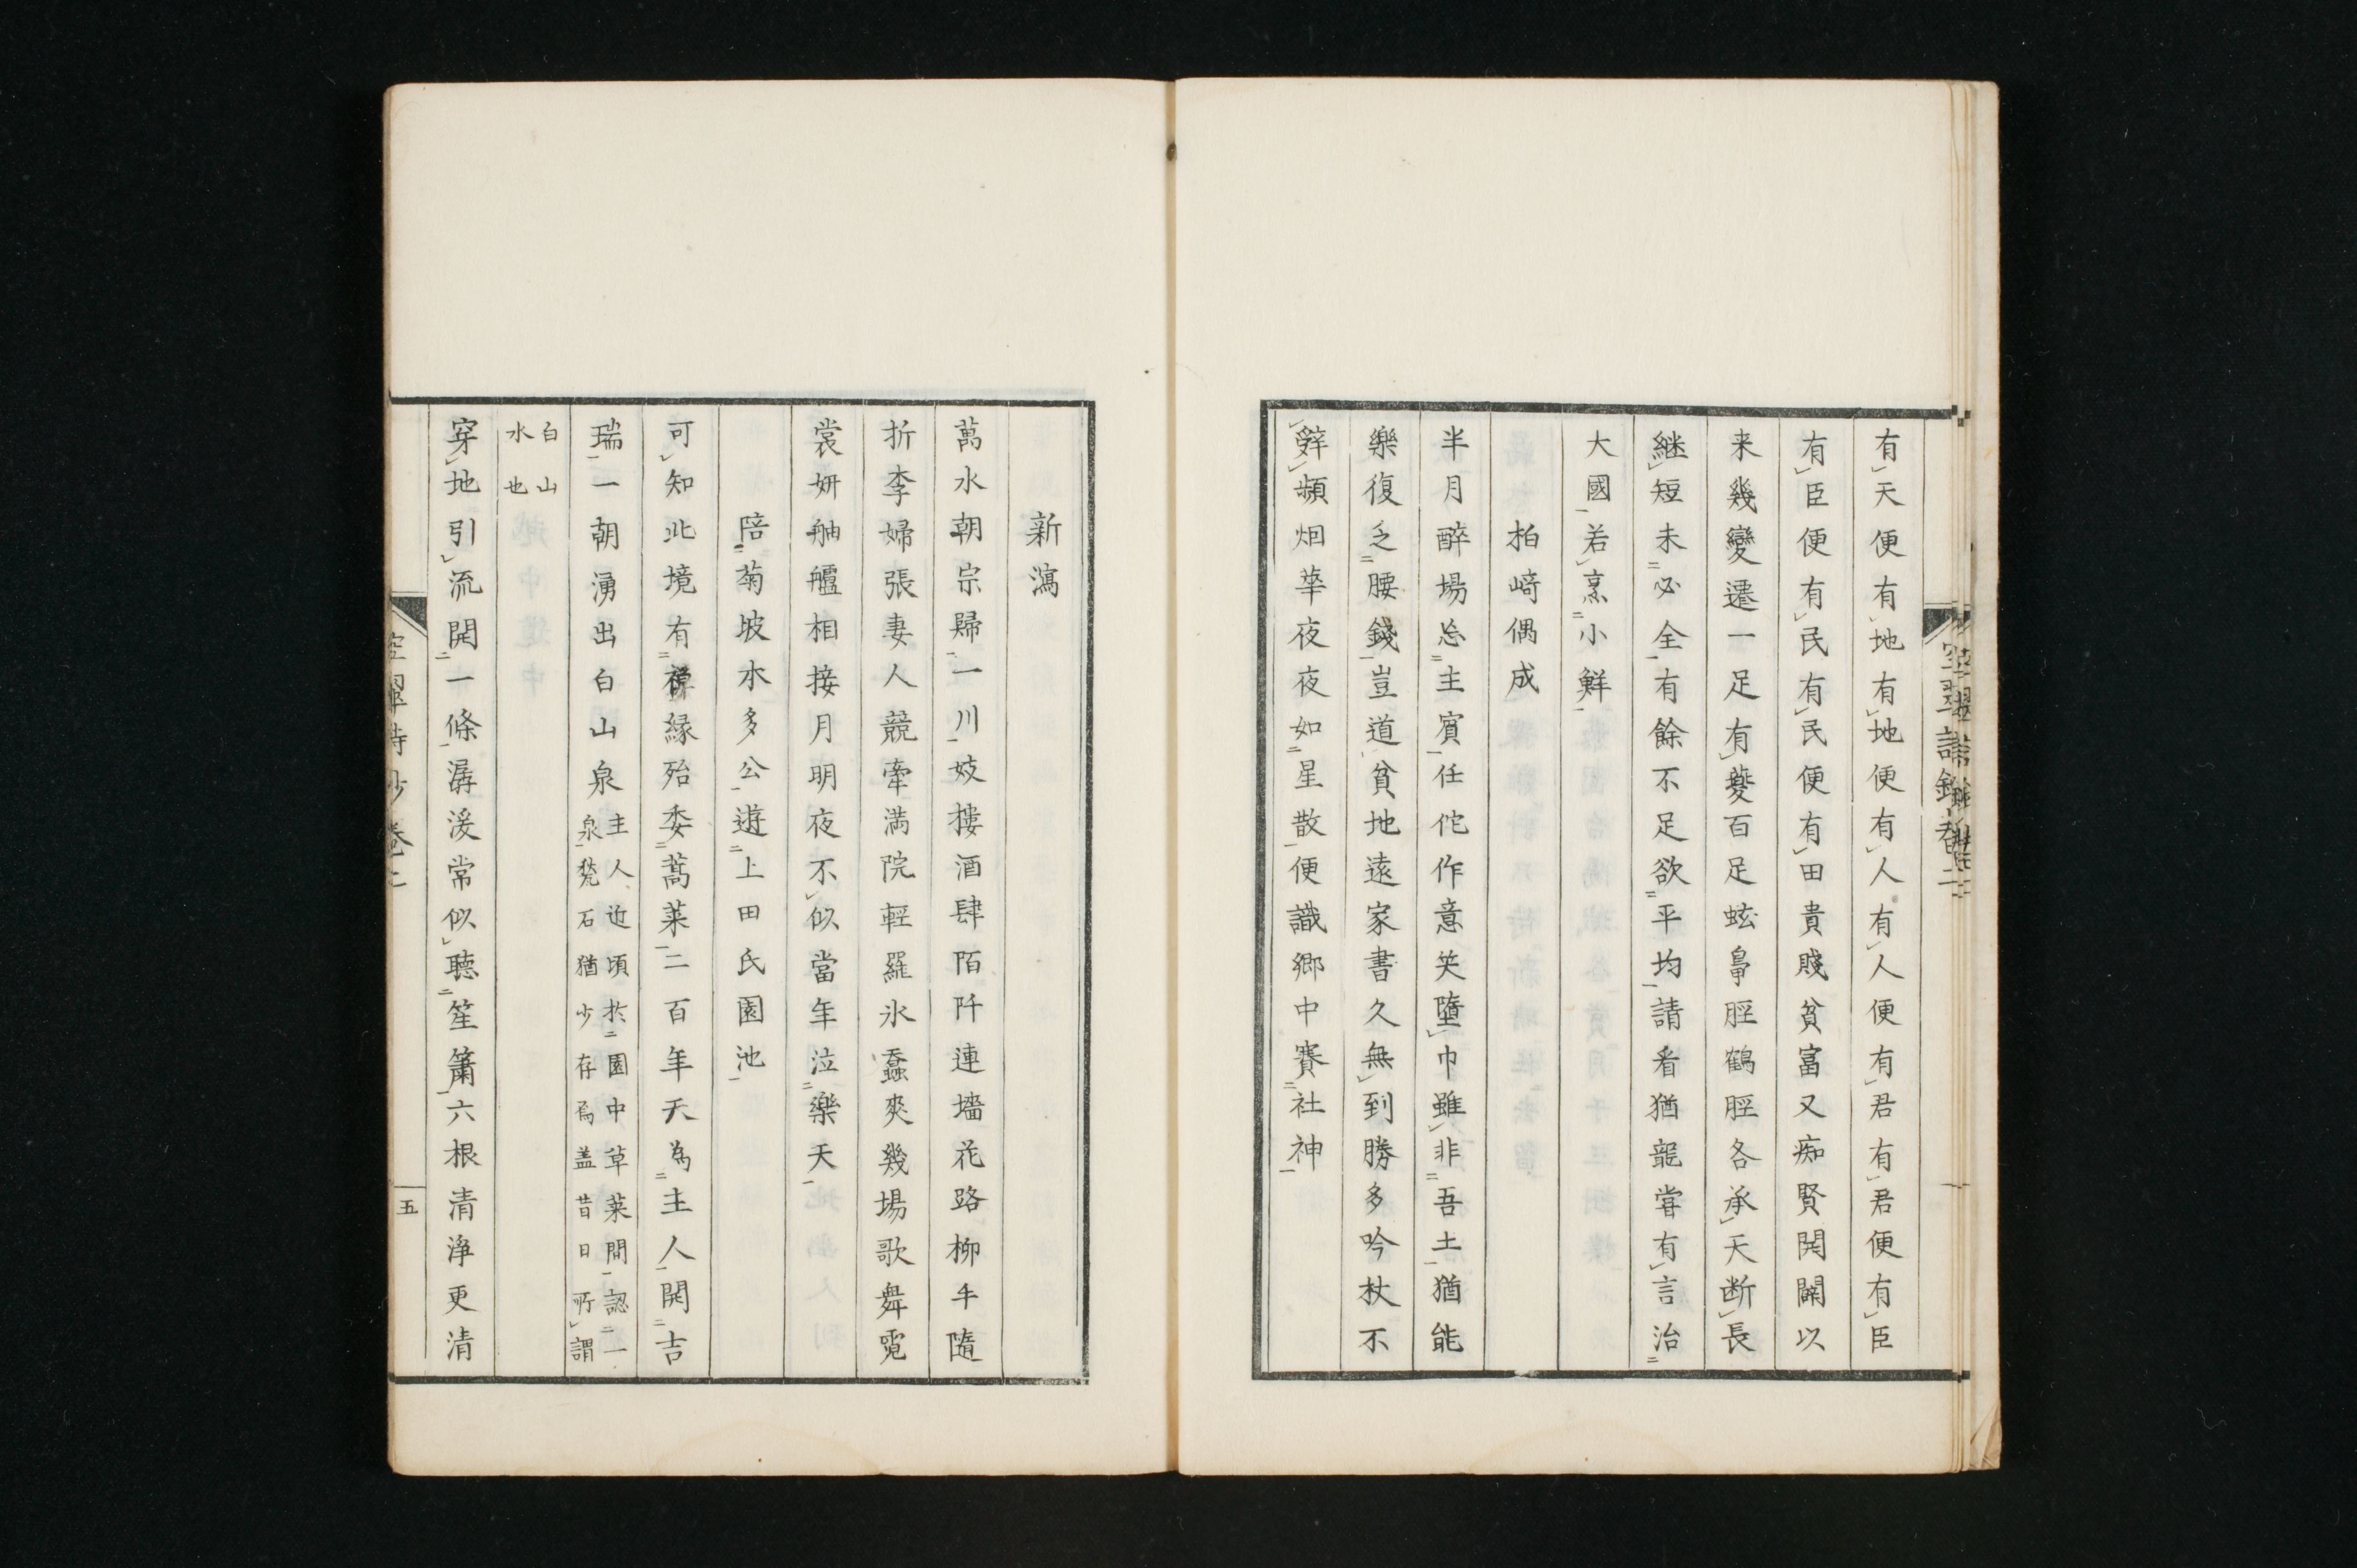 有天便有地有地便有人有人便有君有君便有臣
有臣便有民有民便有田貴賤貧富又痴賢開闢以
来幾變遷一足有夔百足蚿鳧脛鶴脛各承天断長
継短未必全有餘不足欲平均請看猶龍嘗有言治
大國若烹小鮮
柏﨑偶成
半月醉場忘主賓任佗作意笑墮巾雖非吾土猶能
樂復乏腰錢豈道貧地遠家書久無到勝多吟杖不
辤頻烟華夜夜如星散便識郷中賽社神
新瀉
萬水朝宗歸一川妓樓酒肆陌阡連墻花路柳手隨
折李婦張妻人競牽満院輕羅氷蚕爽幾場歌舞霓
裳妍舳艫相接月明夜不似當年泣樂天
陪菊坡水多公遊上田氏園池
可知此境有禅緣殆委蒿莱二百年天為主人開吉
瑞一朝湧出白山泉主人近頃於園中草莱間認一
泉甃石猶少存焉盖昔日所謂
白山
水也
穿地引流開一條潺湲常似聴笙簫六根清浄更清
空翠詩鈔巻二
五